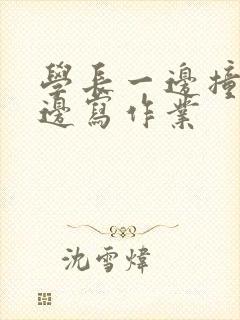 學長一邊撞
邊寫作業
沈雪煒